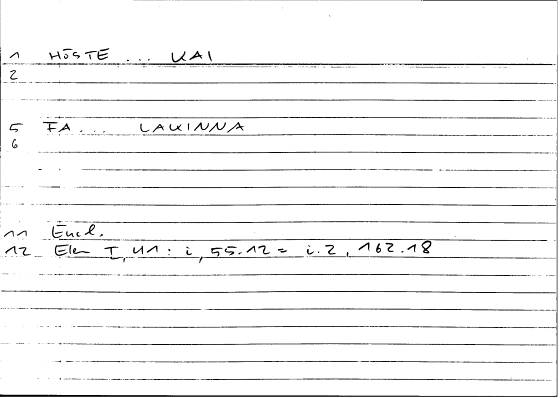 1 HŌSTE ... KAI
2
5 FA ... LAKINNA
6
11 Eucl.
12 Elem I, 41: i, 55.12 = i.2, 162.18